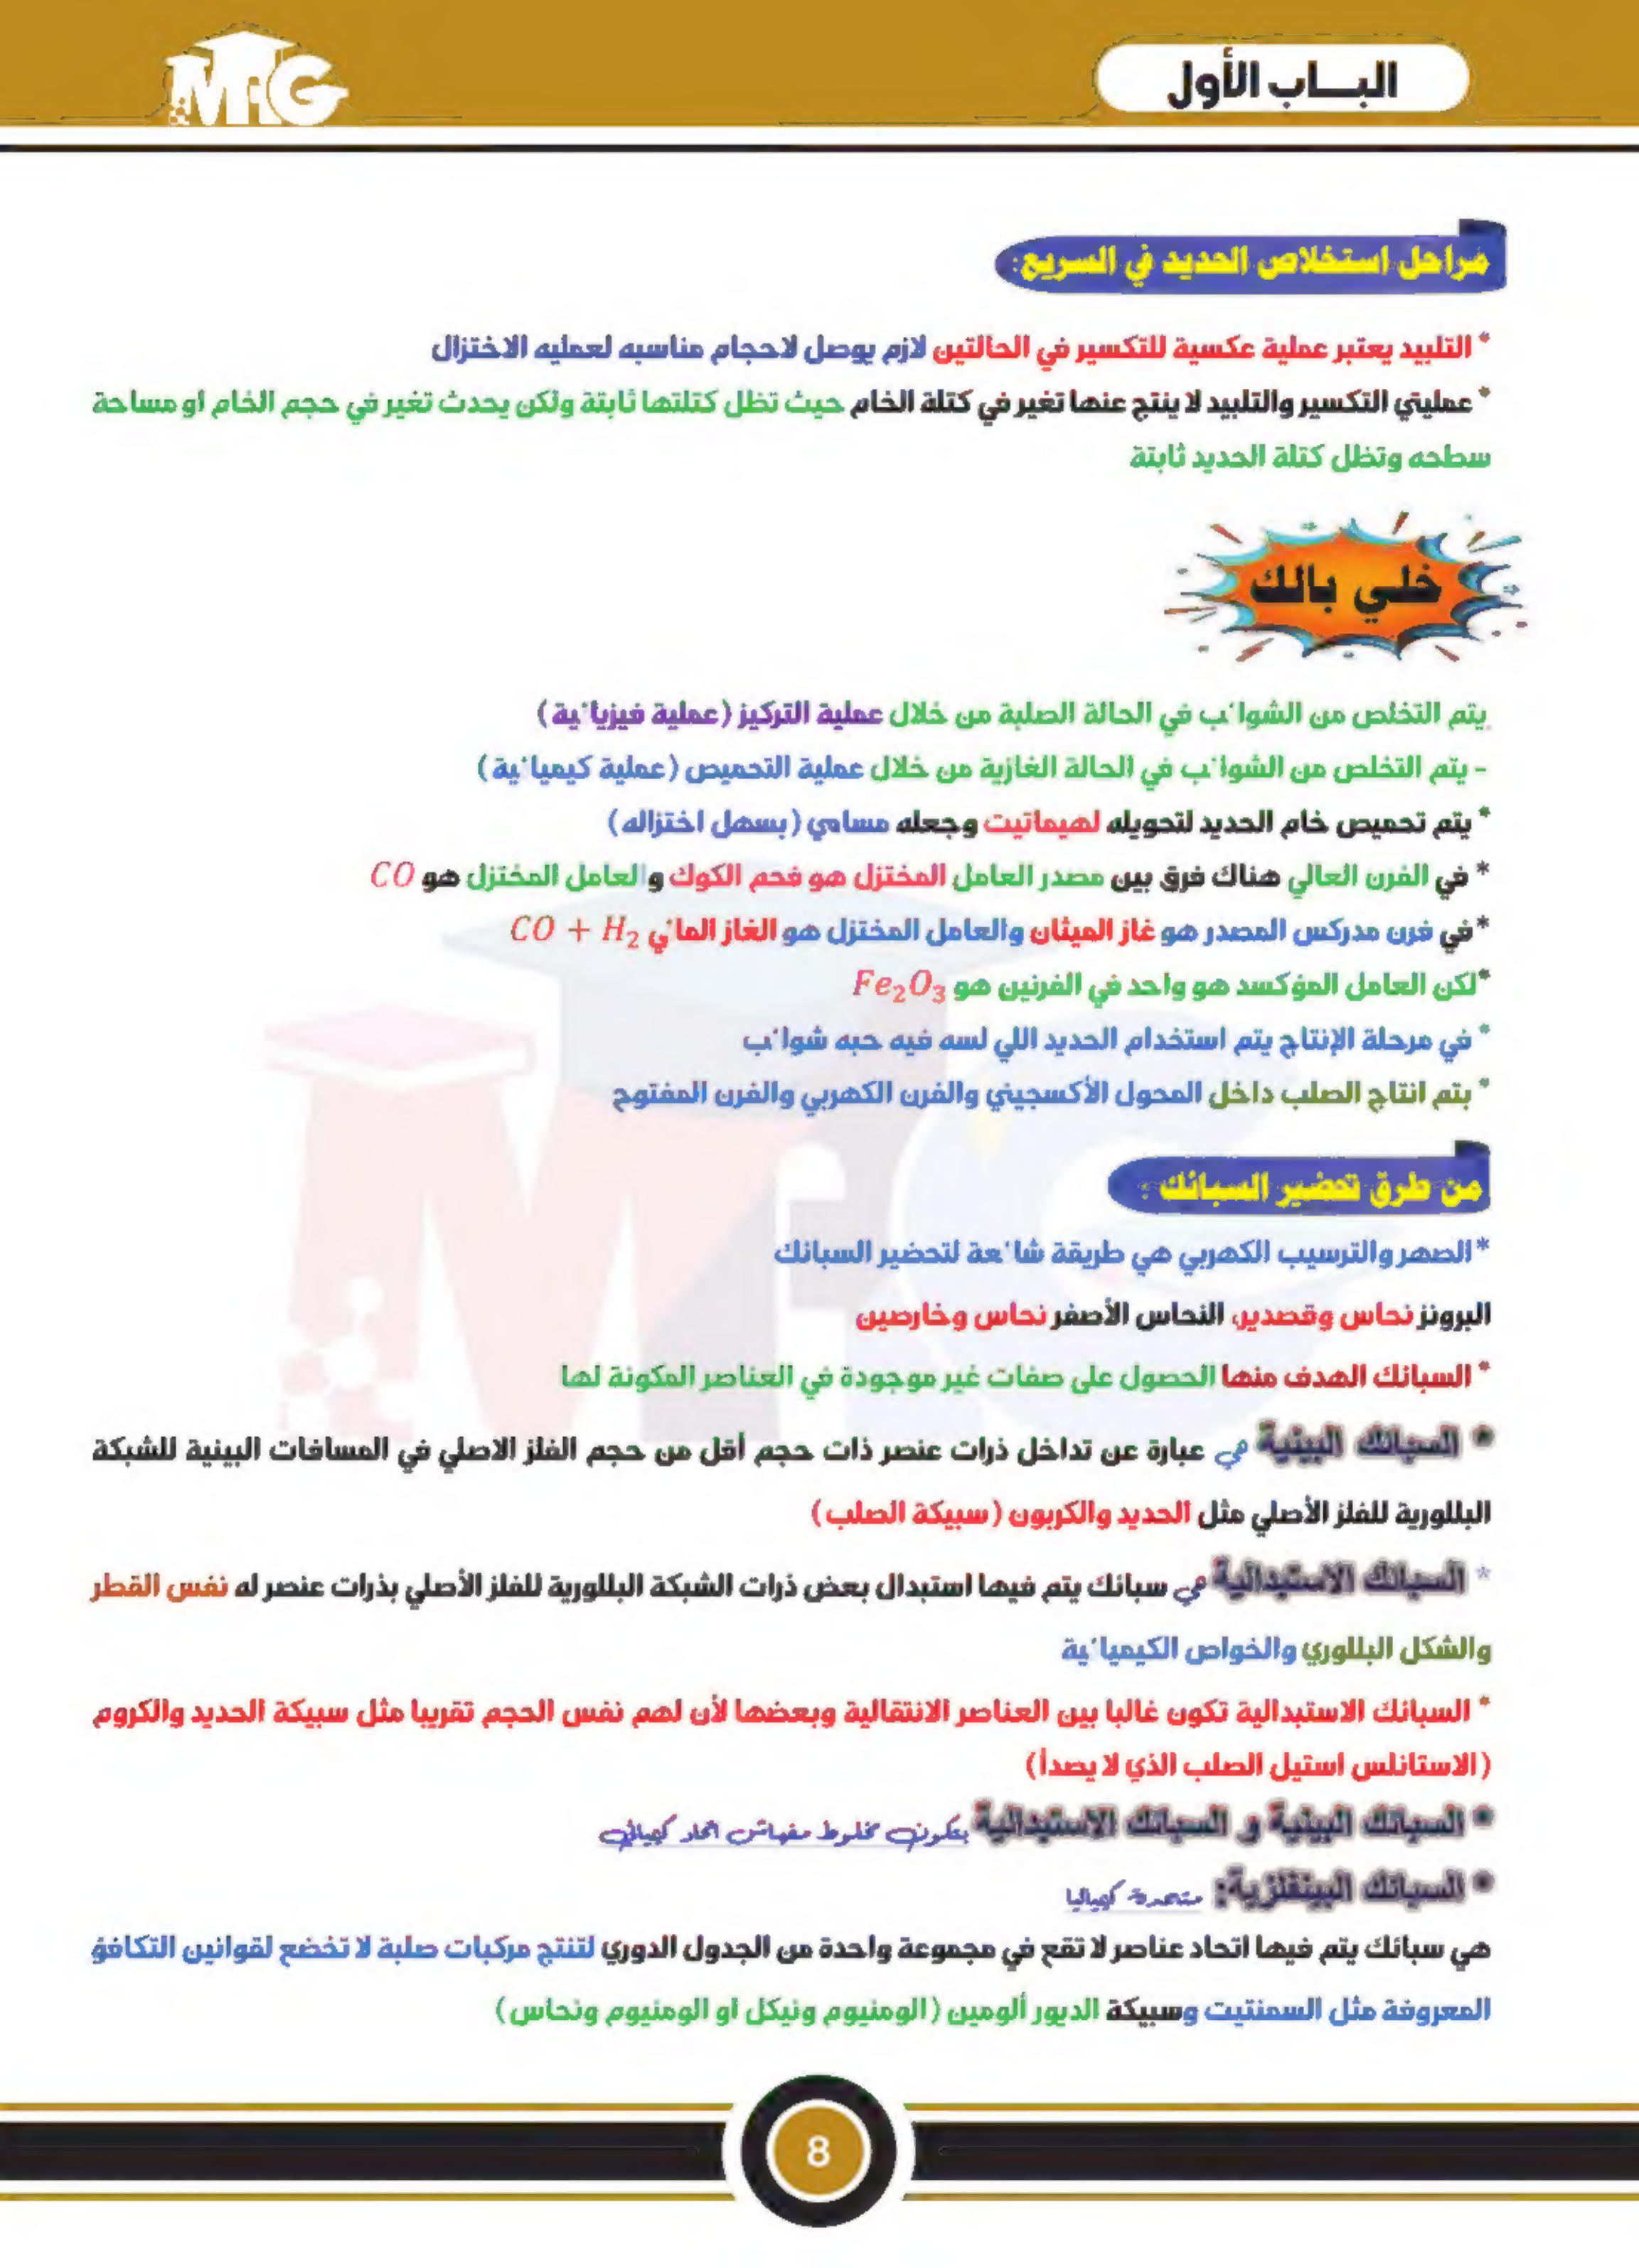 MrG
البـــاب الأول
مراحل استخلاص الحديد في السريع:
* التلبيد يعتبر عملية عكسية للتكسير في الحالتين لازم يوصل لاحجام مناسبه لعمليه الاختزال
* عمليتي التكسير والتلبيد لا ينتج عنها تغير في كتلة الخام حيث تظل كتلتها ثابتة ولكن يحدث تغير في حجم الخام او مساحة
سطحه وتظل كتلة الحديد ثابتة
خلي بالك
يتم التخلص من الشوائب في الحالة الصلبة من خلال عملية التركيز (عملية فيزيائية)
- يتم التخلص من الشوائب في الحالة الغازية من خلال عملية التحميص (عملية كيميائية)
* يتم تحميص خام الحديد لتحويله لهيماتيت وجعله مسامي (يسهل اختزاله)
* في الفرن العالي هناك فرق بين مصدر العامل المختزل هو فحم الكوك والعامل المختزل هو CO
*في فرن مدركس المصدر هو غاز الميثان والعامل المختزل هو الغاز المائي CO + H₂
*لكن العامل المؤكسد هو واحد في الفرنين هو Fe₂O₃
* في مرحلة الإنتاج يتم استخدام الحديد اللي لسه فيه حبه شوائب
* يتم انتاج الصلب داخل المحول الأكسجيني والفرن الكهربي والفرن المفتوح
من طرق تحضير السبائك :
*الصهر والترسيب الكهربي هي طريقة شائعة لتحضير السبائك
البرونز نحاس وقصدير، النحاس الأصفر نحاس وخارصين
* السبائك الهدف منها الحصول على صفات غير موجودة في العناصر المكونة لها
* السبائك البينية هي عبارة عن تداخل ذرات عنصر ذات حجم أقل من حجم الفلز الاصلي في المسافات البينية للشبكة
البللورية للفلز الأصلي مثل الحديد والكربون (سبيكة الصلب)
* السبائك الاستبدالية هي سبائك يتم فيها استبدال بعض ذرات الشبكة البللورية للفلز الأصلي بذرات عنصر له نفس القطر
والشكل البللوري والخواص الكيميائية
* السبائك الاستبدالية تكون غالبا بين العناصر الانتقالية وبعضها لأن لهم نفس الحجم تقريبا مثل سبيكة الحديد والكروم
(الاستانلس استيل الصلب الذي لا يصدأ)
* السبائك البينية و السبائك الاستبدالية بيكونو مخلوط مفيهاش اتحاد كيميائي
* السبائك البينفلزية: متحدة كيميائيا
هي سبائك يتم فيها اتحاد عناصر لا تقع في مجموعة واحدة من الجدول الدوري لتنتج مركبات صلبة لا تخضع لقوانين التكافؤ
المعروفة مثل السمنتيت وسبيكة الديور ألومين (الومنيوم ونيكل او الومنيوم ونحاس)
8